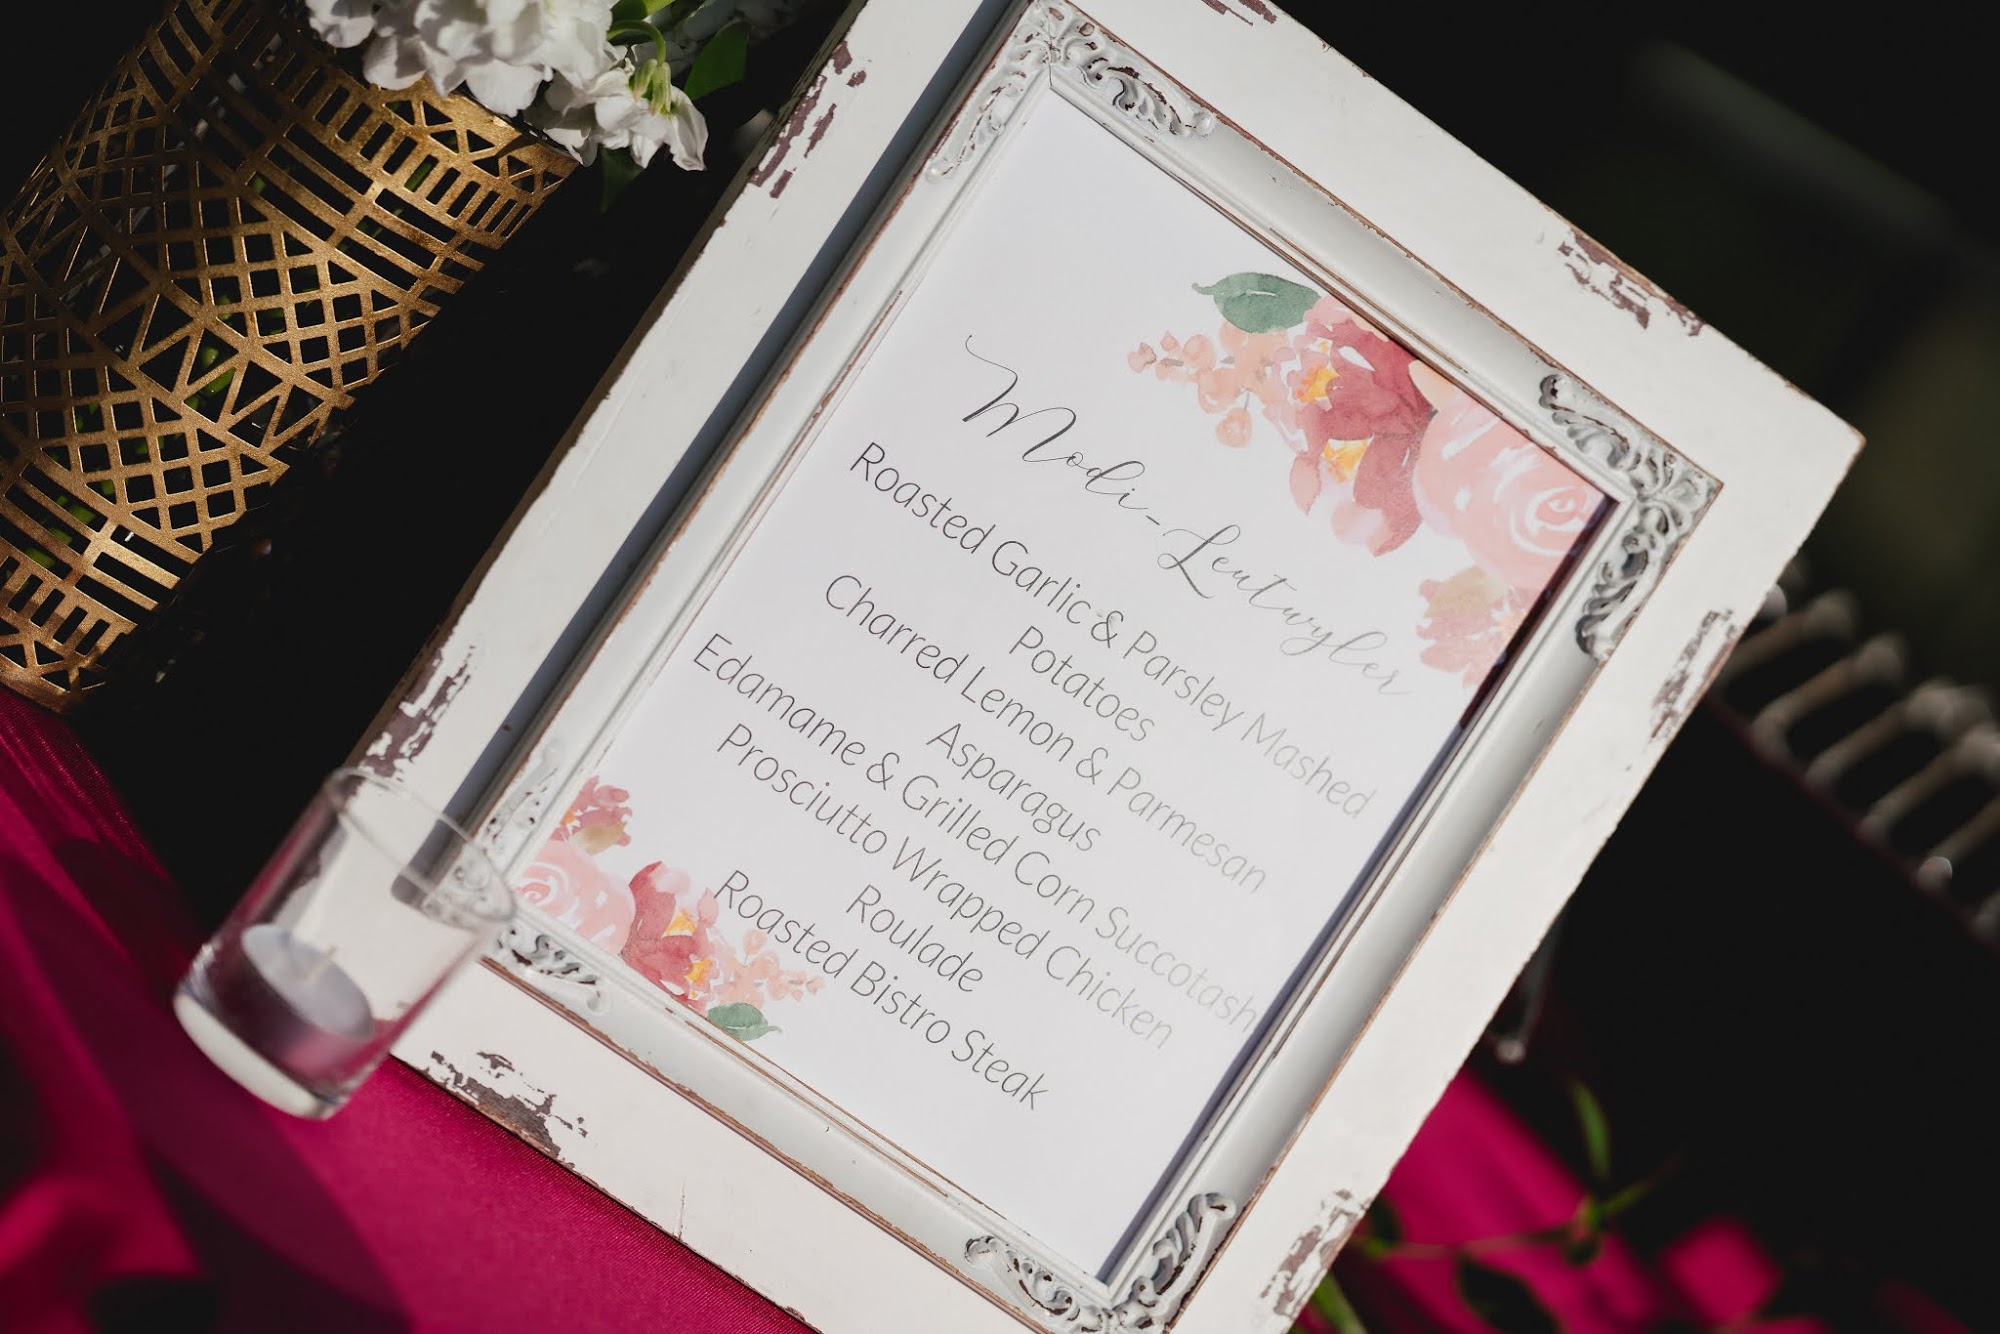 Modi-Leutwyler
Roasted Garlic & Parsley Mashed
Potatoes
Charred Lemon & Parmesan
Asparagus
Edamame & Grilled Corn Succotash
Prosciutto Wrapped Chicken
Roulade
Roasted Bistro Steak